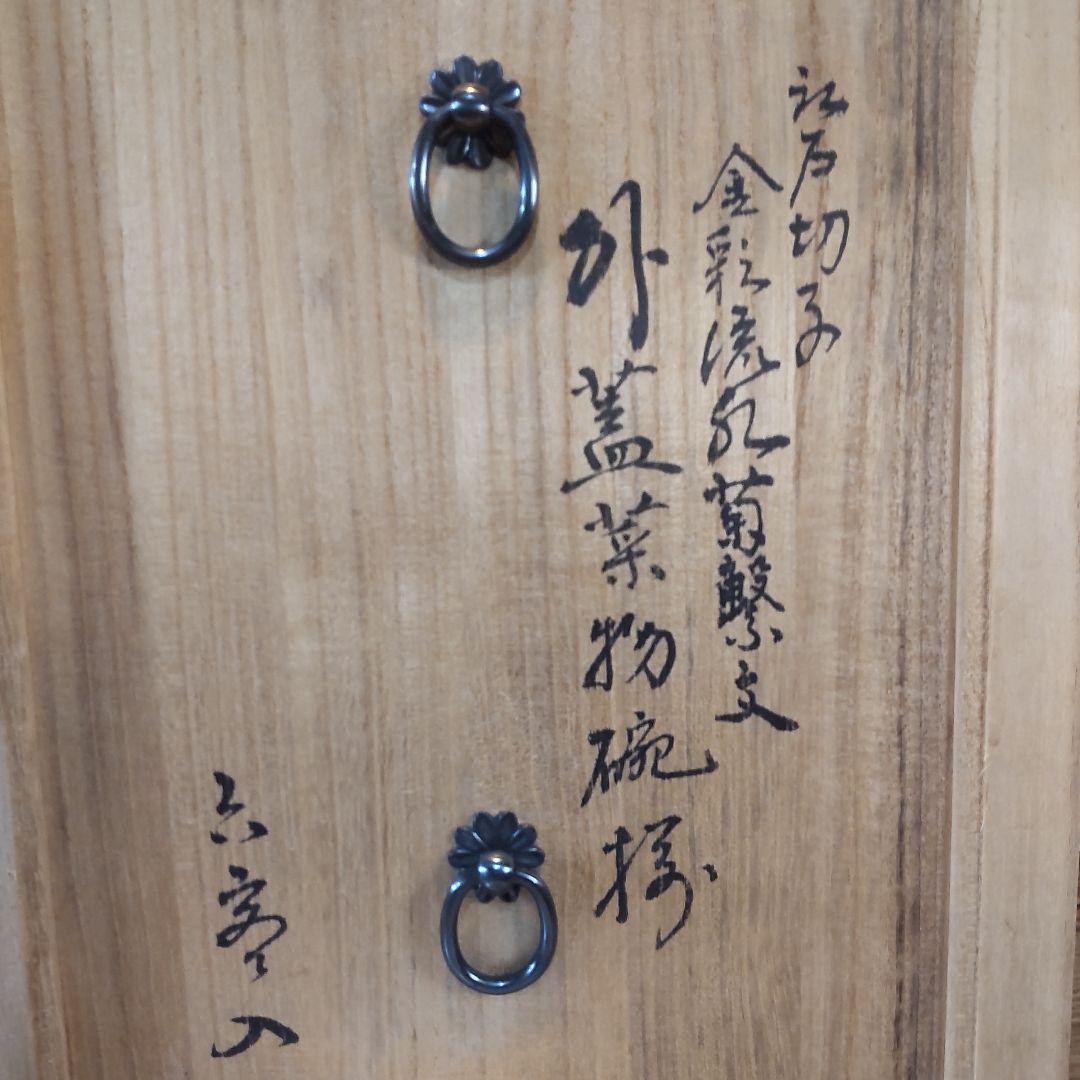 江戸切子
金彩流水菊繋文
外蓋菓物碗揃
六客入